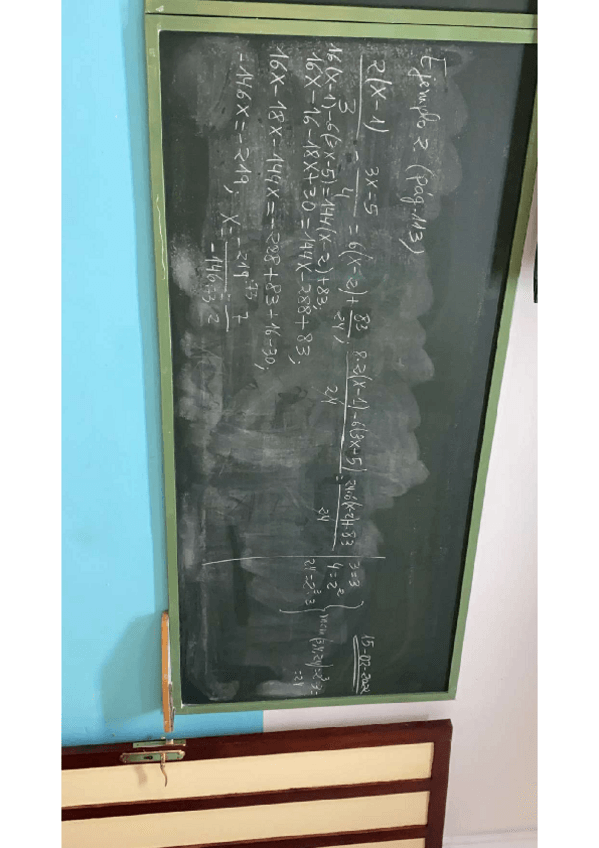 Ejemplo 2 (pág. 113)
15-02-2022
2(x-1)/3 - 3x-5/4 = 6(x-2) + 83/24; 8·2(x-1)-6(3x-5)/24 = 24·6(x-2)+83/24
16(x-1)-6(3x-5)=144(x-2)+83;
16x-16-18x+30=144x-288+83;
16x-18x-144x=-288+83+16-30;
-146x=-219; x= -219:73/-146:73 = 3/2
3=3
4=2²
24=2³·3
mcm(3,4,24)=2³·3=
=24